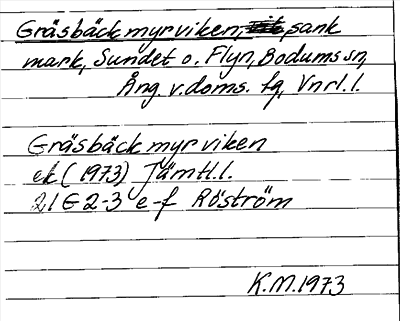 Gräsbäckmyrviken, sank
mark, Sundet o. Flyn, Bodums sn,
Ång. v. doms. tg, Vnrl. l.
Gräsbäckmyrviken
ek (1973) Jämtl. l.
21 G 2-3 e-f Röström
K.M. 1973